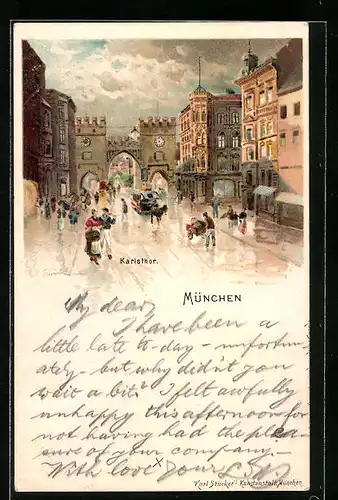 Karlsthor.
MÜNCHEN
My dear,
I have been a
little late to-day – unfortun-
ately – but why didn't you
wait a bit? I felt awfully
unhappy this afternoon for
not having had the plea-
sure of your company –
With love yours
Karl Stücker's Kunstanstalt, München